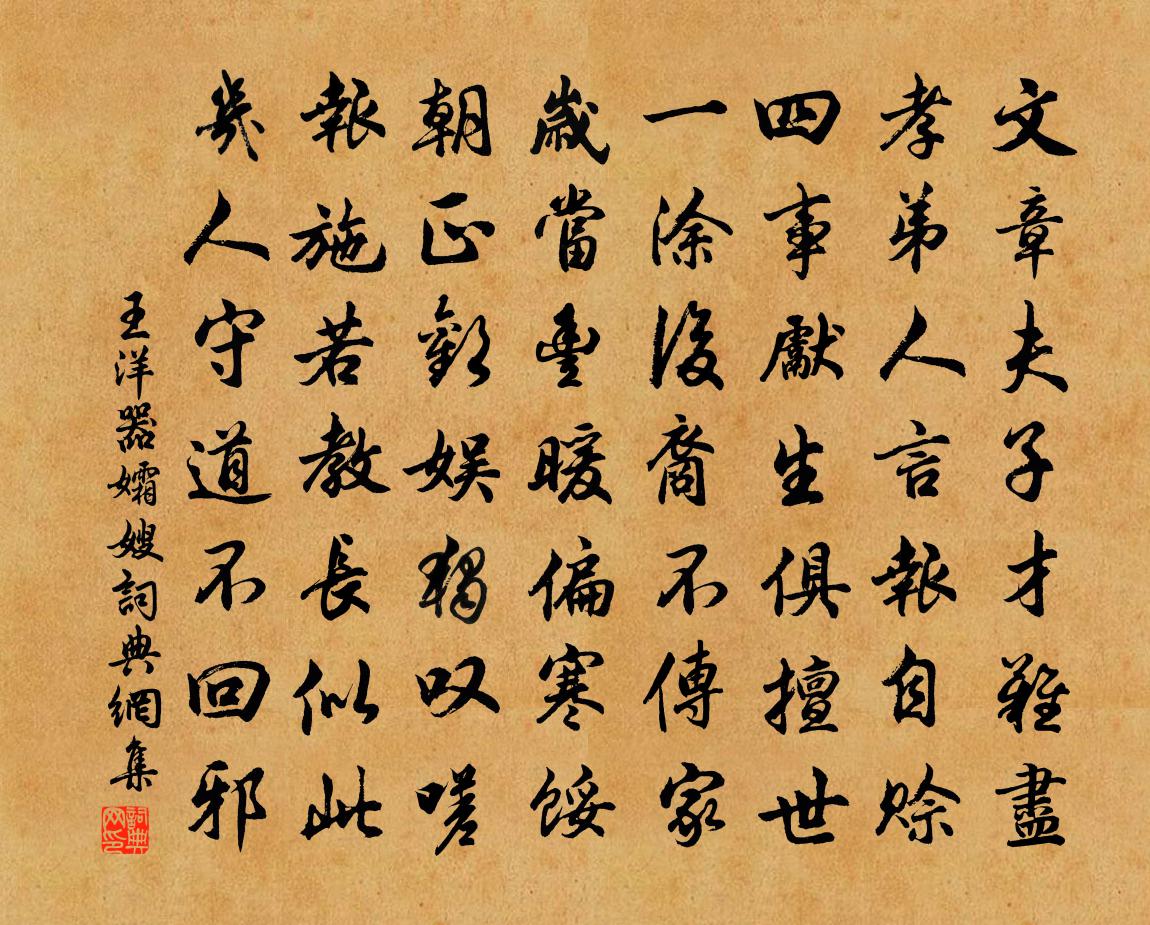 文章夫子才難盡
孝弟人言報自賒
四事獻生俱擅世
一涂後裔不傳家
歲當豐暖偏寒餒
朝正歡娛獨叹嗟
報施若教長似此
幾人守道不回邪
王洋器孀嫂詞典網集
詞典网印